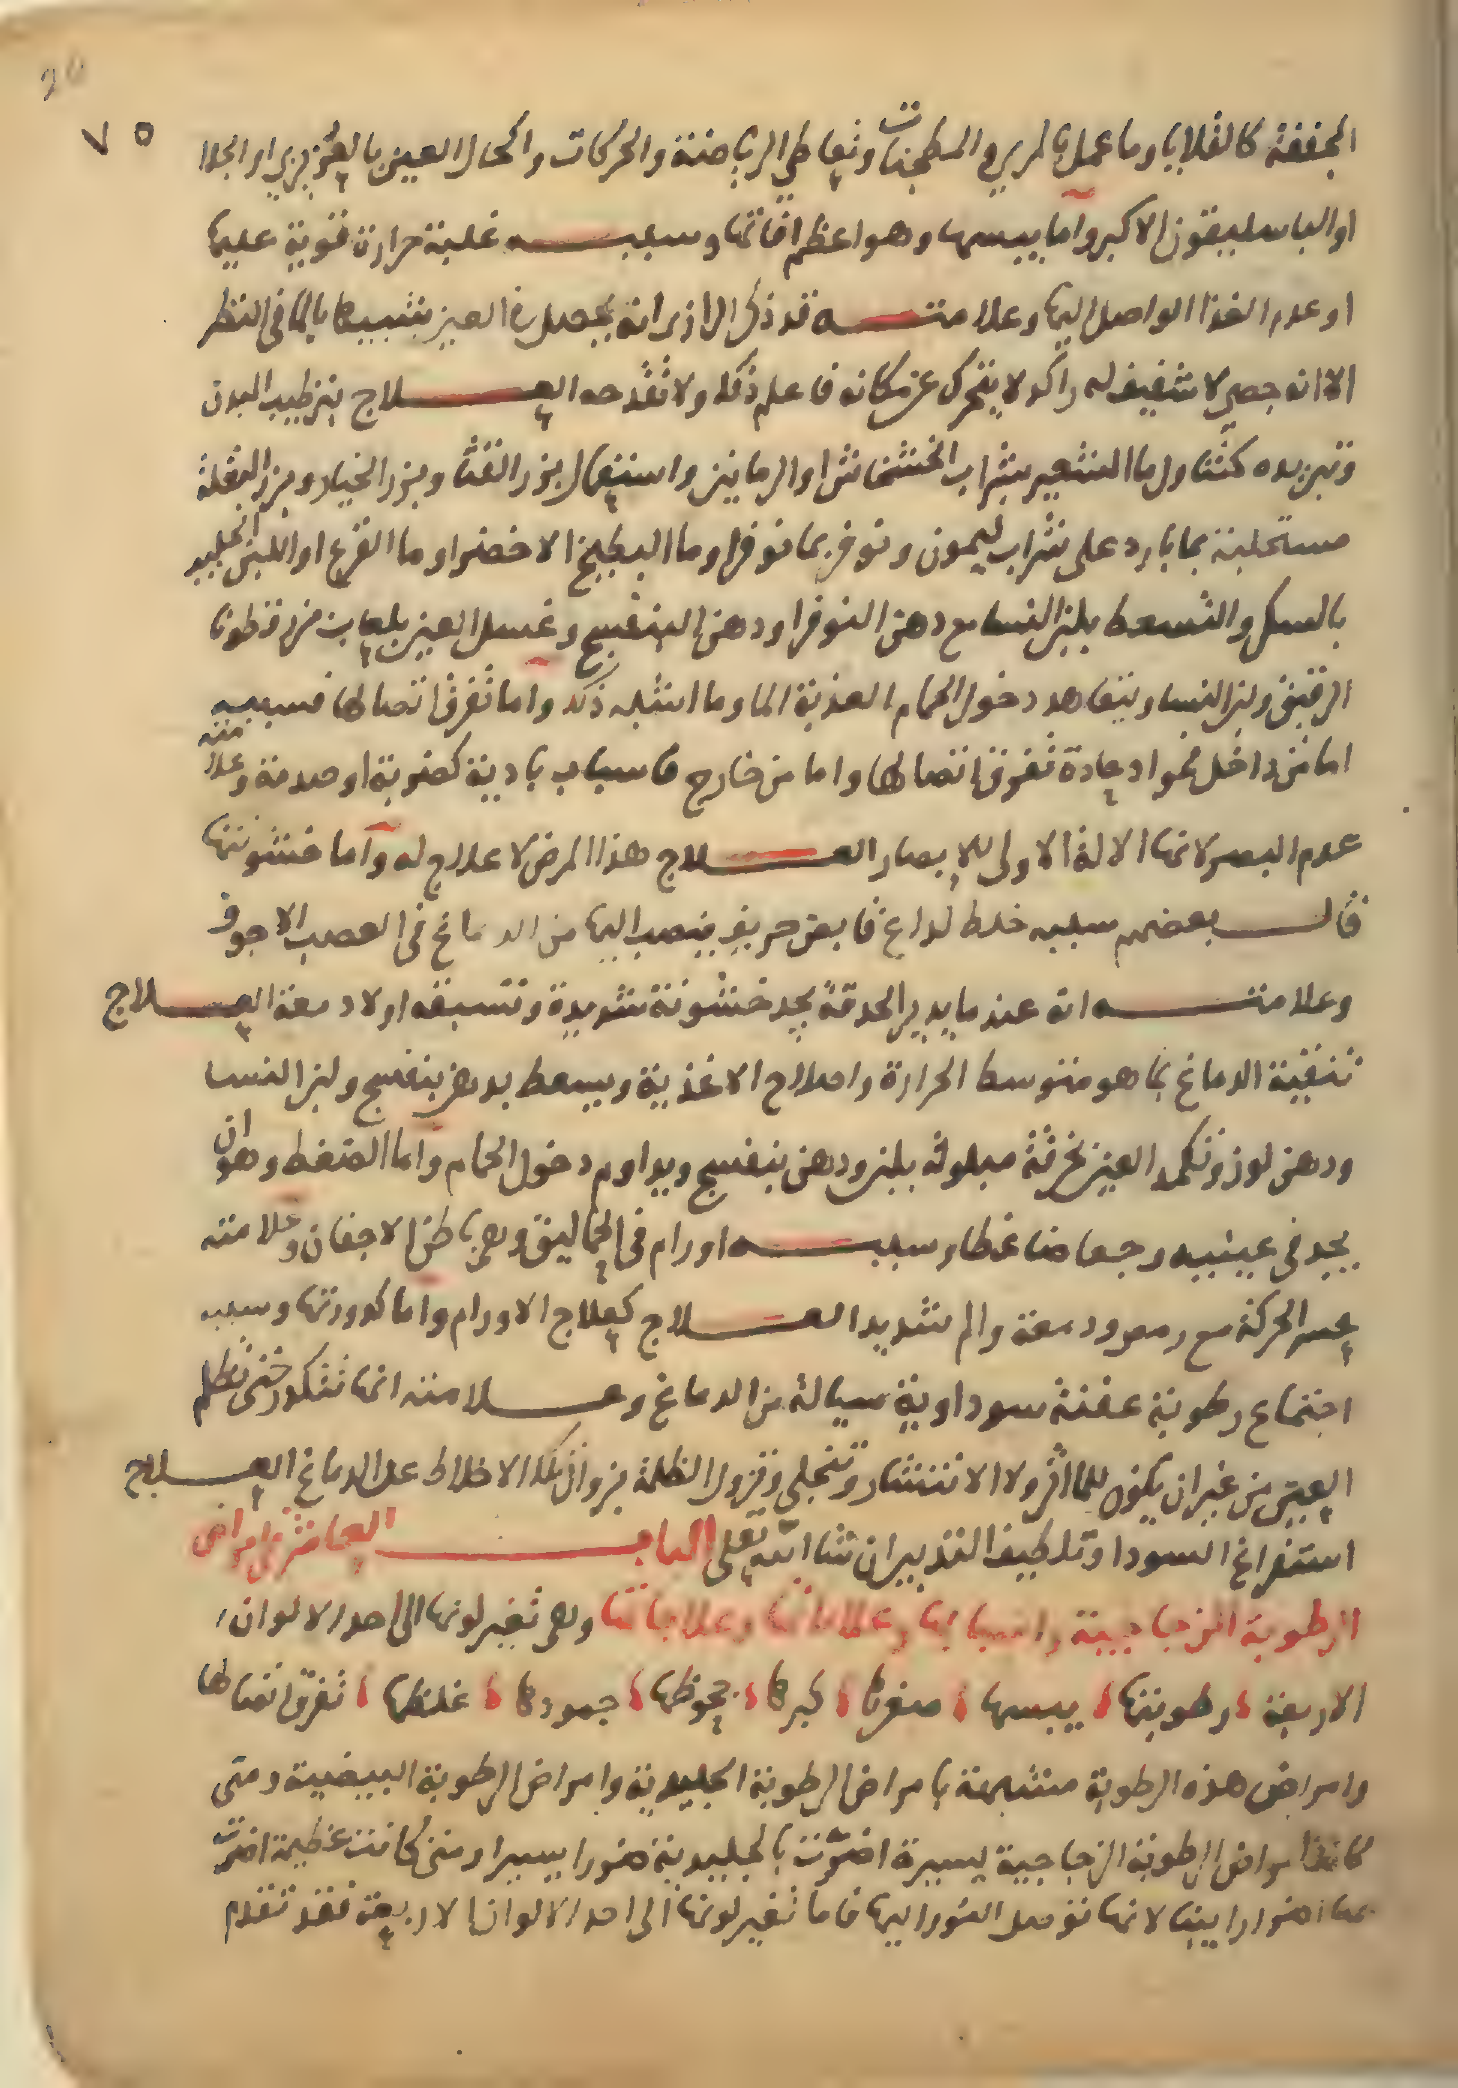 ٧٥
المجففة كالقلايا وما عمل بالمري والمطجنات وتعاطي الرياضة والحركات واكحال العين بالعزيزي او الجلا
او الباسليقون الاكبر وأما يبسها وهو اعظم افاتها وسببه غلبة حرارة قوية عليها
او عدم الغذا الواصل اليها وعلامته قد ذكر الرازي انه يحصل في العين شبيها بالما في النظر
الا انه جصي لا شفيف له راكد لا يتحرك عن مكانه فاعلم ذلك ولا تقدحه العلاج بترطيب البدن
وتبريده كتناول ما الشعير بشراب الخشخاش او الرمانين واستعمال بزر القثا وبزر الخيار وبزر البقلة
مستحلبة بما بارد على شراب ليمون ونوفر بما نوفر او ما البطيخ الاخضر او ما القرع او اللبن الحليب
بالسكر والتسعط بلبن النسا مع دهن النوفر او دهن البنفسج وغسل العين بلعاب بزر قطونا
الرقيق ولبن النسا ويتعاهد دخول الحمام العذبة الما وما اشبه ذلك وأما تفرق اتصالها فسببه
اما من داخل فمواد حادة تفرق اتصالها واما من خارج فاسباب بادية كضربة او صدمة وعلامته
عدم البصر لانها الالة الاولى للابصار العلاج هذا المرض لا علاج له وأما خشونتها
قال بعضهم سببه خلط لداع قابض حريف ينصب اليها من الدماغ في العصب الاجوف
وعلامته انه عند ما يدير الحدقة يجد خشونة شديدة وتسبقه اولا دمعة العلاج
تنقية الدماغ بما هو متوسط الحرارة واصلاح الاغذية ويسعط بدهن بنفسج ولبن النسا
ودهن لوز وتكمد العين بخرقة مبلولة بلبن ودهن بنفسج ويداوم دخول الحمام وأما الضغط وهو ان
يجد في عينيه وجعا ضاغطا وسببه اورام في الحماليق وهي باطن الاجفان وعلامته
عسر الحركة مع رمد ودمعة والم شديد العلاج كعلاج الاورام وأما كدورتها وسببه
اجتماع رطوبة عفنة سوداوية سيالة من الدماغ وعلامته انها تتكدر حتى تظلم
العين من غير ان يكون للما اثر ولا الانتشار وتنجلي وتزول الظلمة بزوال تلك الاخلاط عن الدماغ العلاج
استفراغ السودا وتلطيف التدبير ان شا الله تعالى الباب العاشر في امراض
الرطوبة الزجاجية واسبابها وعلاماتها وعلاجاتها وهي تغير لونها الى احد الالوان
الاربعة رطوبتها يبسها صغرها كبرها جحوظها جمودها غلظها تفرق اتصالها
وامراض هذه الرطوبة متشبهة بامراض الرطوبة الجليدية وامراض الرطوبة البيضية ومتى
كانت امراض الرطوبة الزجاجية يسيرة اضرت بالجليدية ضررا يسيرا ومتى كانت عظيمة اضرت
بها اضرارا بينا لانها توصل الضرر اليها فاما تغير لونها الى احد الالوان الاربعة فقد تقدم